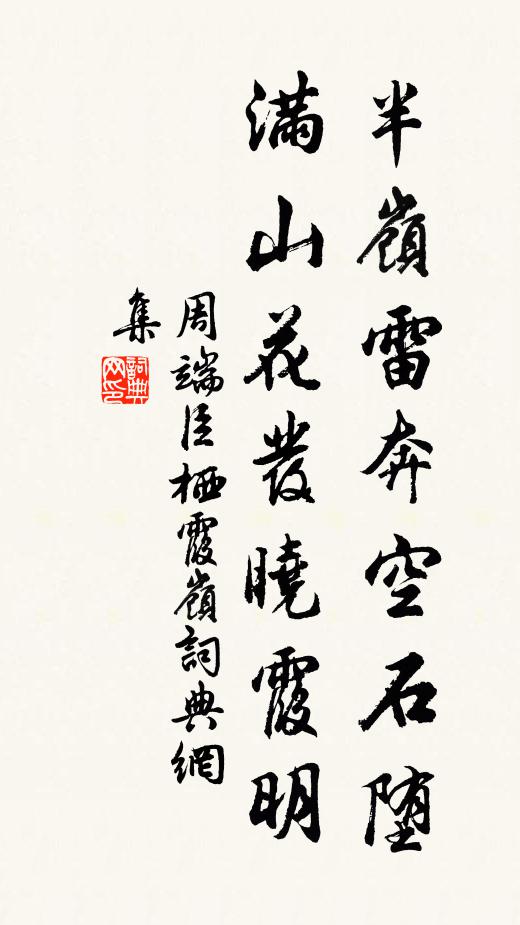 半嶺雷奔空石堕
滿山花發曉霞明
周端臣栖霞嶺詞典網
集
詞典网印